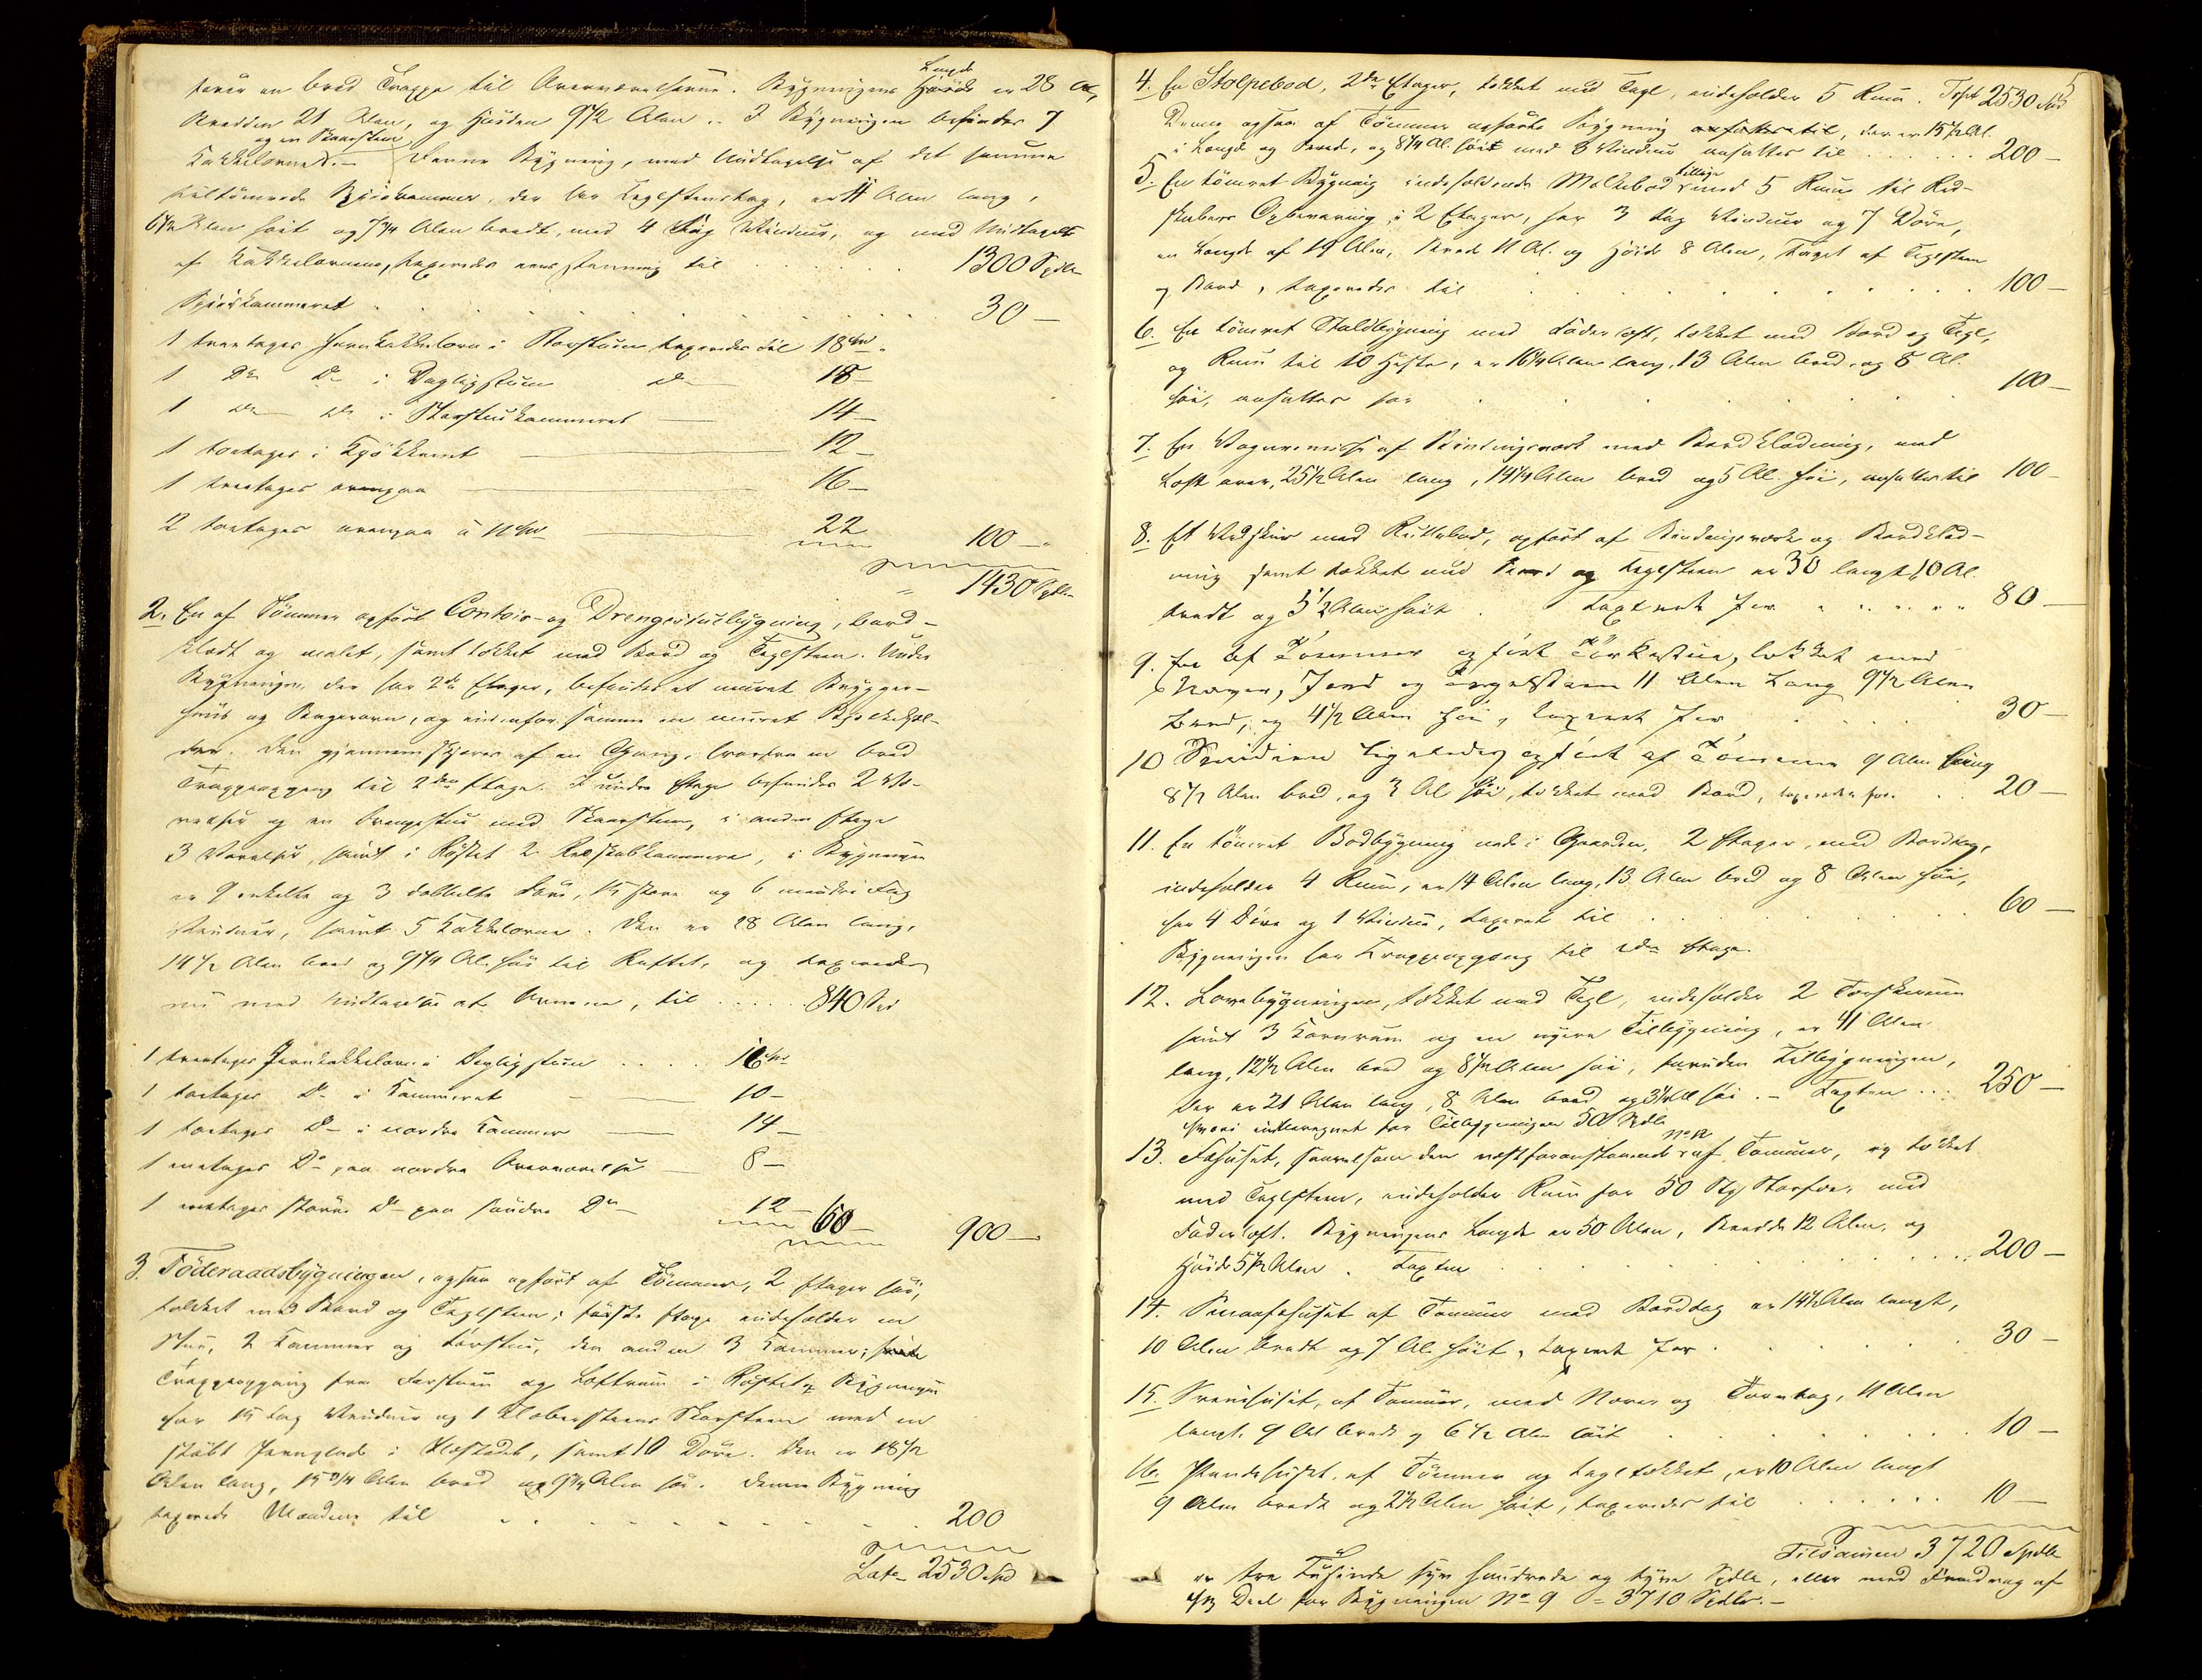 fører en bred Trappe til Overværelserne. Bygningens Længde er 28 Al,
Bredden 21 Alen, og Høiden 9 1/2 Alen. I Bygningen befindes 7
Kakkelovne og en Skaarsteen. Denne Bygning, med Undtagelse af det samme
tiltømrede Spiiskammer, der har Teglsteenstag, er 11 Alen lang,
6 1/2 Alen høit og 7 1/4 Alen bredt, med 4 Fag Vinduer, og med Undtagelse
af Kakkelovnene, taxeredes eenstemmig til . . . 1300 Spdlr
Spiiskammeret . . . 30 —
1 treetages Jernkakkelovn i Storstuen taxeredes til 18 Spd.
1 Do Do i Dagligstuen do 18 —
1 do do i Storstuekammeret — 14 —
1 toetages i Kjøkkenet — 12 —
1 treetages ovenpaa — 16 —
2 toetages ovenpaa a 11 Spd — 22 100 —
1430 Spdlr
2. En af Tømmer opført Contoir- og Drengestuebygning, bord-
klædt og malet, samt tækket med Bord og Teglsteen. Under
Bygningen, der har 2de Etager, befindes et muret Brygger-
huus og Bagerovn, og indenfor samme en muret
der. Den gjennemskjæres af en Gang, hvorfra en bred
Trappeopgang til 2den Etage. I undre Etage befindes 2 Væ-
relser og en Drengestue med Skaarsteen, i anden Etage
3 Værelser, samt i Røstet 2 Redskabkammere, i Bygningen
er 9 enkelte og 3 dobbelte Døre, 15 store og 6 mindre Fag
Vinduer, samt 5 Kakkelovne. Den er 28 Alen lang,
14 1/2 Alen bred og 9 1/4 Al. høi til Raftet, og taxeredes
nu med Undtagelse af Ovnene, til . . . . 840 Spd
1 treetages Jernkakkelovn i Dagligstuen . . . . 16 Spd
1 toetages Do i Kammeret — 10 —
1 toetages Do i nordre Kammer — 14 —
1 eenetages Do paa nordre Overværelse — 8 —
1 eenetages større Do paa søndre Do — 12 — 60 — 900 —
3. Föderaadsbygningen, ogsaa opført af Tømmer, 2 Etager høi,
tækket med Bord og Teglsteen; første Etage indeholder en
Stue, 2 Kammer og Forstue, den anden 3 Kammer;
Trappeopgang fra Forstuen og Loftrum i Røstet. Bygningen
har 15 Fag Vinduer og 1 Klæbersteens Skorsteen med en
støbt Jernplade i Ildstedet, samt 10 Døre. Den er 18 1/2
Alen lang, 15 3/4 Alen bred og 9 1/4 Alen høi. Denne Bygning
taxerede Mændene til . . . 200
Lat. 2530 Spd
4. En Stolpebod, 2de Etager, tækket med Tagl, indeholder 5 Rum. Tspt 2530 Spd
Denne ogsaa af Tømmer opførte Bygning, der er 15 1/2 Al.
i Længde og Bred, og 8 1/4 Al. høit med 8 Vinduer ansattes til . . . 200 —
5. En tømret Bygning indeholdende Matbod tillige med 5 Rum til Red-
skabers Opbevaring, i 2 Etager, har 3 Fag Vinduer og 7 Døre,
en Længde af 19 Alen, Bred 11 Al. og Høide 8 Alen, Taget af Teglsteen
og Bord, taxeredes til . . . 100 —
6. En tømret Staldbygning med Foderloft, tækket med Bord og Tegl,
og Rum til 10 Heste, er 16 1/4 Alen lang, 13 Alen bred, og 8 Al.
høi, ansattes for . . . 100 —
7. En Vognremisse af Bindingsværk med Bordklædning, med
Loft over, 25 1/2 Alen lang, 14 1/4 Alen bred og 5 Al. høi, ansattes til 100 —
8. Et Vedskur med Rullebod, opført af Bindingsværk og Bordklæd-
ning samt tækket med Bord og Teglsteen er 30 langt, 10 Al.
bredt og 5 1/2 Alen høit . taxeret for . . . 80 —
9. En af Tömmer opført Törkestue, tækket med
Næver, Jord og Tegelsteen 11 Alen Lang 9 1/2 Alen
Bred, og 4 1/2 Alen høi, taxeret for . . . 30 —
10 Smidien ligeledes opført af Tömmer 9 Alen lang
8 1/2 Alen bred, og 4 Al høi, tækket med Bord, taxeredes for . . 20 —
11. En tömret Bodbygning nede i Gaarden, 2 Etager, med Bordtag,
indeholder 4 Rum, er 14 Alen lang, 13 Alen bred og 8 Alen høi,
har 4 Døre og 1 Vindue, taxeret til . . . 60 —
Bygningen har Trappeopgang til 2den Etage.
12. Lovebygningen, tækket med Tegl, indeholder 2 Tærskerum
samt 3 Kornrum og en nyere Tilbygning, er 41 Alen
lang, 12 1/2 Alen bred og 8 1/2 Alen høi, foruden Tilbygningen,
der er 21 Alen lang, 8 Alen bred og 3 1/2 Al høi. — Taxten . . . 250 —
hvori indberegnet for Tilbygningen 50 Spdlr
13. Fæhuset, saavelsom den næstforanstaaende No 12 af Tømmer, og tækket
med Teglsteen, indeholder Rum for 50 Stkr Storfæ, med
Foderloft. Bygningens Længde er 50 Alen, Bredde 12 Alen, og
Høide 5 1/2 Alen. Taxten . . . 200 —
14. Smaafæhuset af Tømmer med Bordtag er 14 1/2 Alen langt,
10 Alen bredt og 7 Al. høit, taxeret for . . . 30 —
15. Sviinhuset, af Tømmer, med Næver og Torvtag, 11 Alen
langt, 9 Al bredt og 6 1/2 Alen høit . . . 10 —
16. af Tømmer og tegltækket, er 10 Alen langt
9 Alen bredt og 2 1/2 Alen høit, taxeredes til . . . 10 —
Tilsamen 3720 Spdlr
er tre Tusinde syv hundrede og tyve Spdlr, eller med Fradrag af
1/3 Deel for Bygningen No 9 = 3710 Spdlr. —